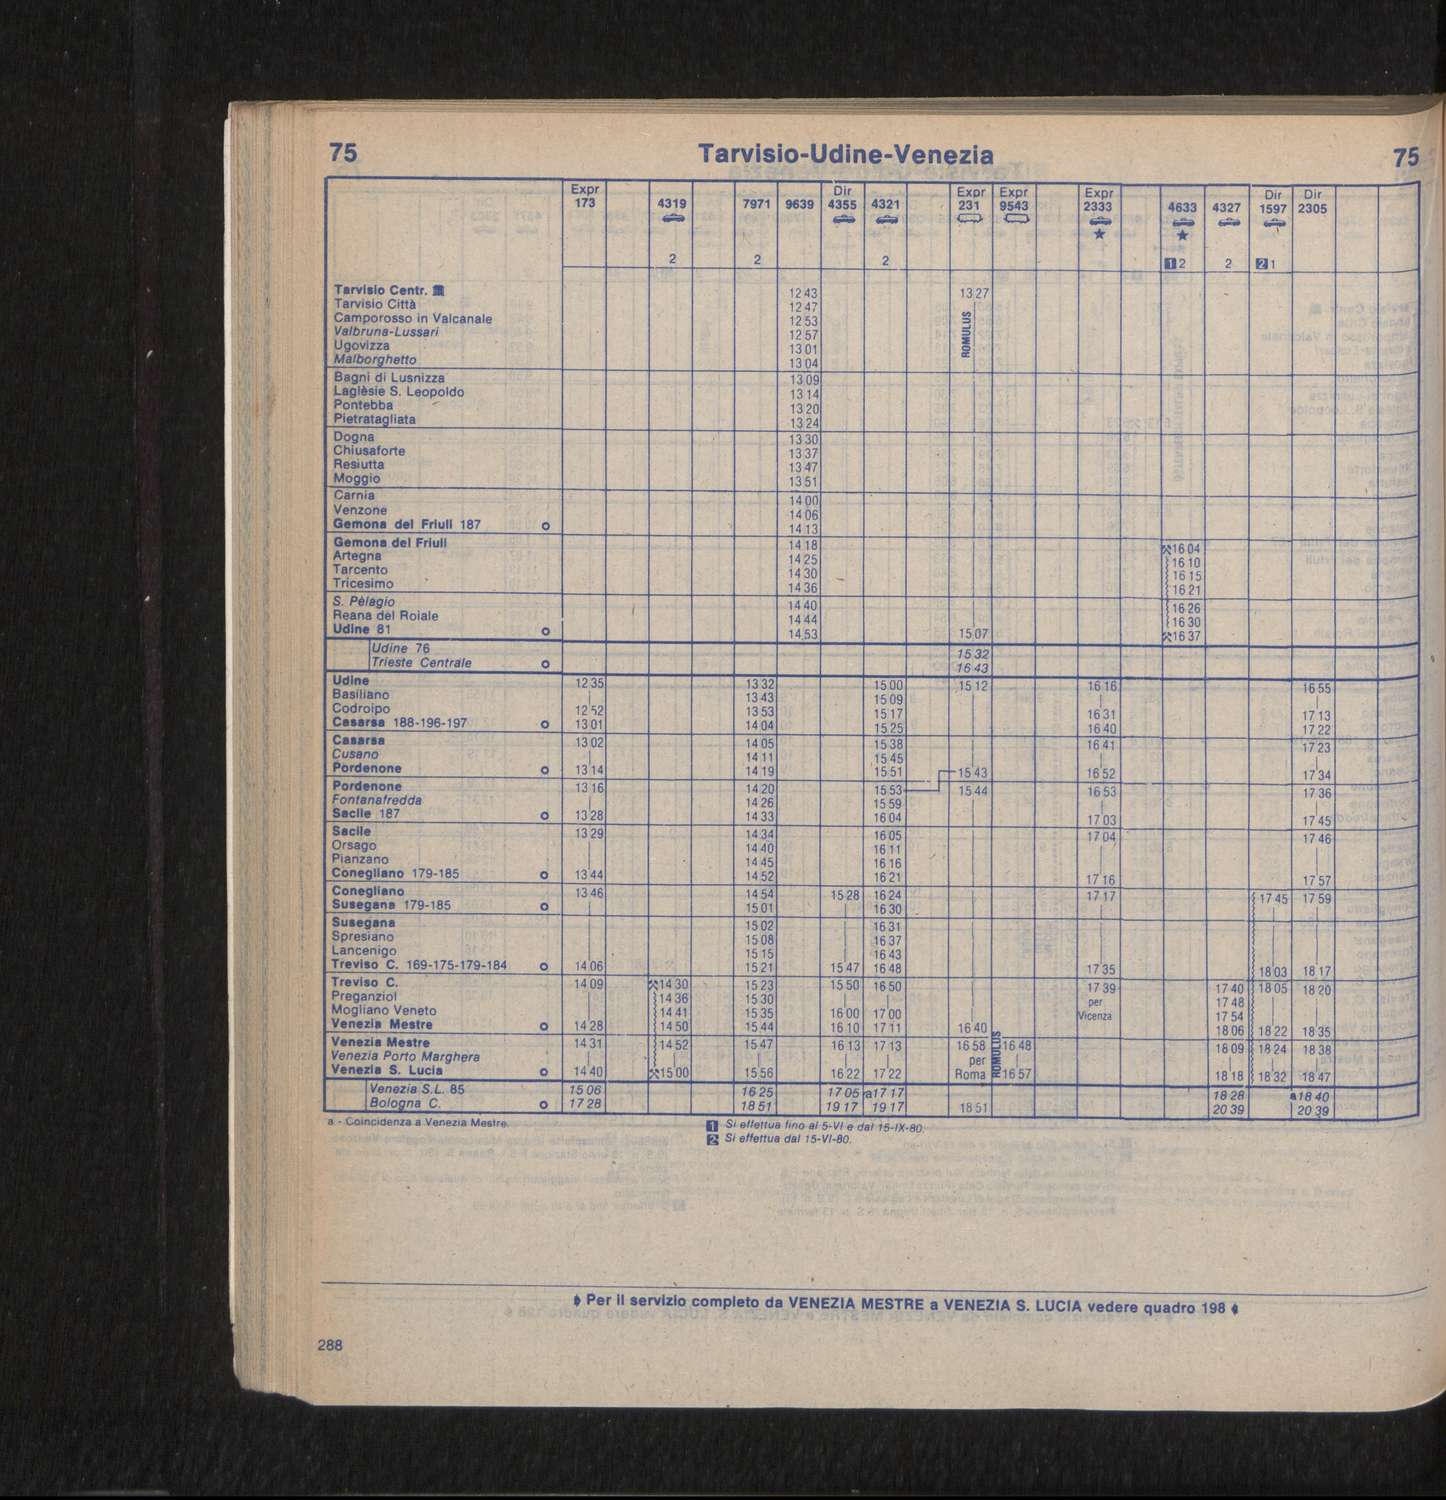 75 Tarvisio-Udine-Venezia 75
Expr Dir Expr Expr Expr Dir Dir
173 4319 7971 9639 4355 4321 231 9543 2333 4633 4327 1597 2305
★ ★
2 2 2 1 2 2 2 1
Tarvisio Centr. 12 43 13 27
Tarvisio Città 12 47
Camporosso in Valcanale 12 53
Valbruna-Lussari 12 57
Ugovizza 13 01
Malborghetto 13 04
ROMULUS
Bagni di Lusnizza 13 09
Laglèsie S. Leopoldo 13 14
Pontebba 13 20
Pietratagliata 13 24
Dogna 13 30
Chiusaforte 13 37
Resiutta 13 47
Moggio 13 51
Carnia 14 00
Venzone 14 06
Gemona del Friuli 187 o 14 13
Gemona del Friuli 14 18 16 04
Artegna 14 25 16 10
Tarcento 14 30 16 15
Tricesimo 14 36 16 21
S. Pèlagio 14 40 16 26
Reana del Roiale 14 44 16 30
Udine 81 o 14 53 15 07 16 37
Udine 76 15 32
Trieste Centrale o 16 43
Udine 12 35 13 32 15 00 15 12 16 16 16 55
Basiliano 13 43 15 09
Codroipo 12 52 13 53 15 17 16 31 17 13
Casarsa 188-196-197 o 13 01 14 04 15 25 16 40 17 22
Casarsa 13 02 14 05 15 38 16 41 17 23
Cusano 14 11 15 45
Pordenone o 13 14 14 19 15 51 15 43 16 52 17 34
Pordenone 13 16 14 20 15 53 15 44 16 53 17 36
Fontanafredda 14 26 15 59
Sacile 187 o 13 28 14 33 16 04 17 03 17 45
Sacile 13 29 14 34 16 05 17 04 17 46
Orsago 14 40 16 11
Pianzano 14 45 16 16
Conegliano 179-185 o 13 44 14 52 16 21 17 16 17 57
Conegliano 13 46 14 54 15 28 16 24 17 17 17 45 17 59
Susegana 179-185 o 15 01 16 30
Susegana 15 02 16 31
Spresiano 15 08 16 37
Lancenigo 15 15 16 43
Treviso C. 169-175-179-184 o 14 06 15 21 15 47 16 48 17 35 18 03 18 17
Treviso C. 14 09 14 30 15 23 15 50 16 50 17 39 17 40 18 05 18 20
Preganziol 14 36 15 30 per 17 48
Mogliano Veneto 14 41 15 35 16 00 17 00 Vicenza 17 54
Venezia Mestre o 14 28 14 50 15 44 16 10 17 11 16 40 18 06 18 22 18 35
Venezia Mestre 14 31 14 52 15 47 16 13 17 13 16 58 16 48 18 09 18 24 18 38
Venezia Porto Marghera per
Venezia S. Lucia o 14 40 15 00 15 56 16 22 17 22 Roma 16 57 18 18 18 32 18 47
ROMULUS
Venezia S.L. 85 15 06 16 25 17 05 a17 17 18 28 a18 40
Bologna C. o 17 28 18 51 19 17 19 17 18 51 20 39 20 39
a - Coincidenza a Venezia Mestre.
1 Si effettua fino al 5-VI e dal 15-IX-80.
2 Si effettua dal 15-VI-80.
Per il servizio completo da VENEZIA MESTRE a VENEZIA S. LUCIA vedere quadro 198
288